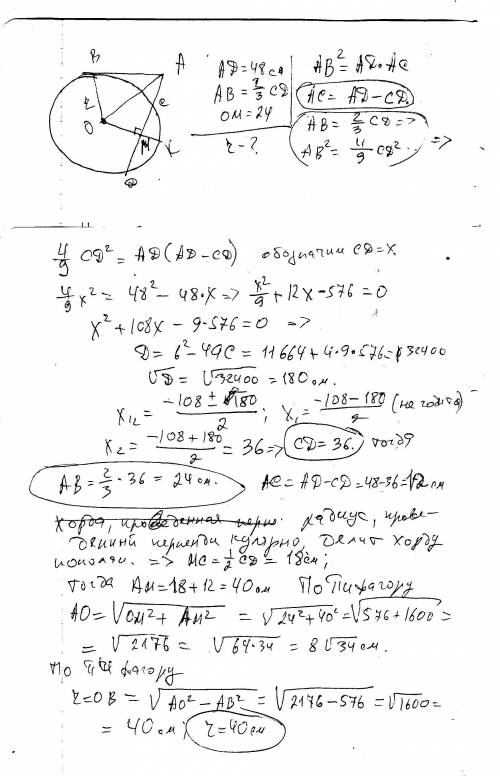 B
A
C
O
r
M
K
D
AD = 48 см
AB = 2/3 CD
OM = 24
r - ?
AB² = AD · AC
AC = AD - CD.
AB = 2/3 CD =>
AB² = 4/9 CD² =>
4/9 CD² = AD(AD - CD) обозначим CD = X.
4/9 x² = 48² - 48·x => x²/9 + 12x - 576 = 0
x² + 108x - 9·576 = 0 =>
D = b² - 4ac = 11664 + 4·9·576 = 32400
√D = √32400 = 180 см.
x₁₂ = (-108 ± 180)/2 ; x₁ = (-108 - 180)/2 (не годится)
x₂ = (-108 + 180)/2 = 36 => CD = 36. тогда
AB = 2/3 · 36 = 24 см. AC = AD - CD = 48 - 36 = 12 см
Хорда, проведенная перп. радиус, прове-
денный перпендикулярно, делит хорду
пополам. => MC = 1/2 CD = 18 см;
тогда AM = 18 + 12 = 40 см По Пифагору
AO = √(OM² + AM²) = √(24² + 40²) = √(576 + 1600) =
= √2176 = √(64·34) = 8√34 см.
По Пифагору
r = OB = √(AO² - AB²) = √(2176 - 576) = √1600 =
= 40 см; r = 40 см